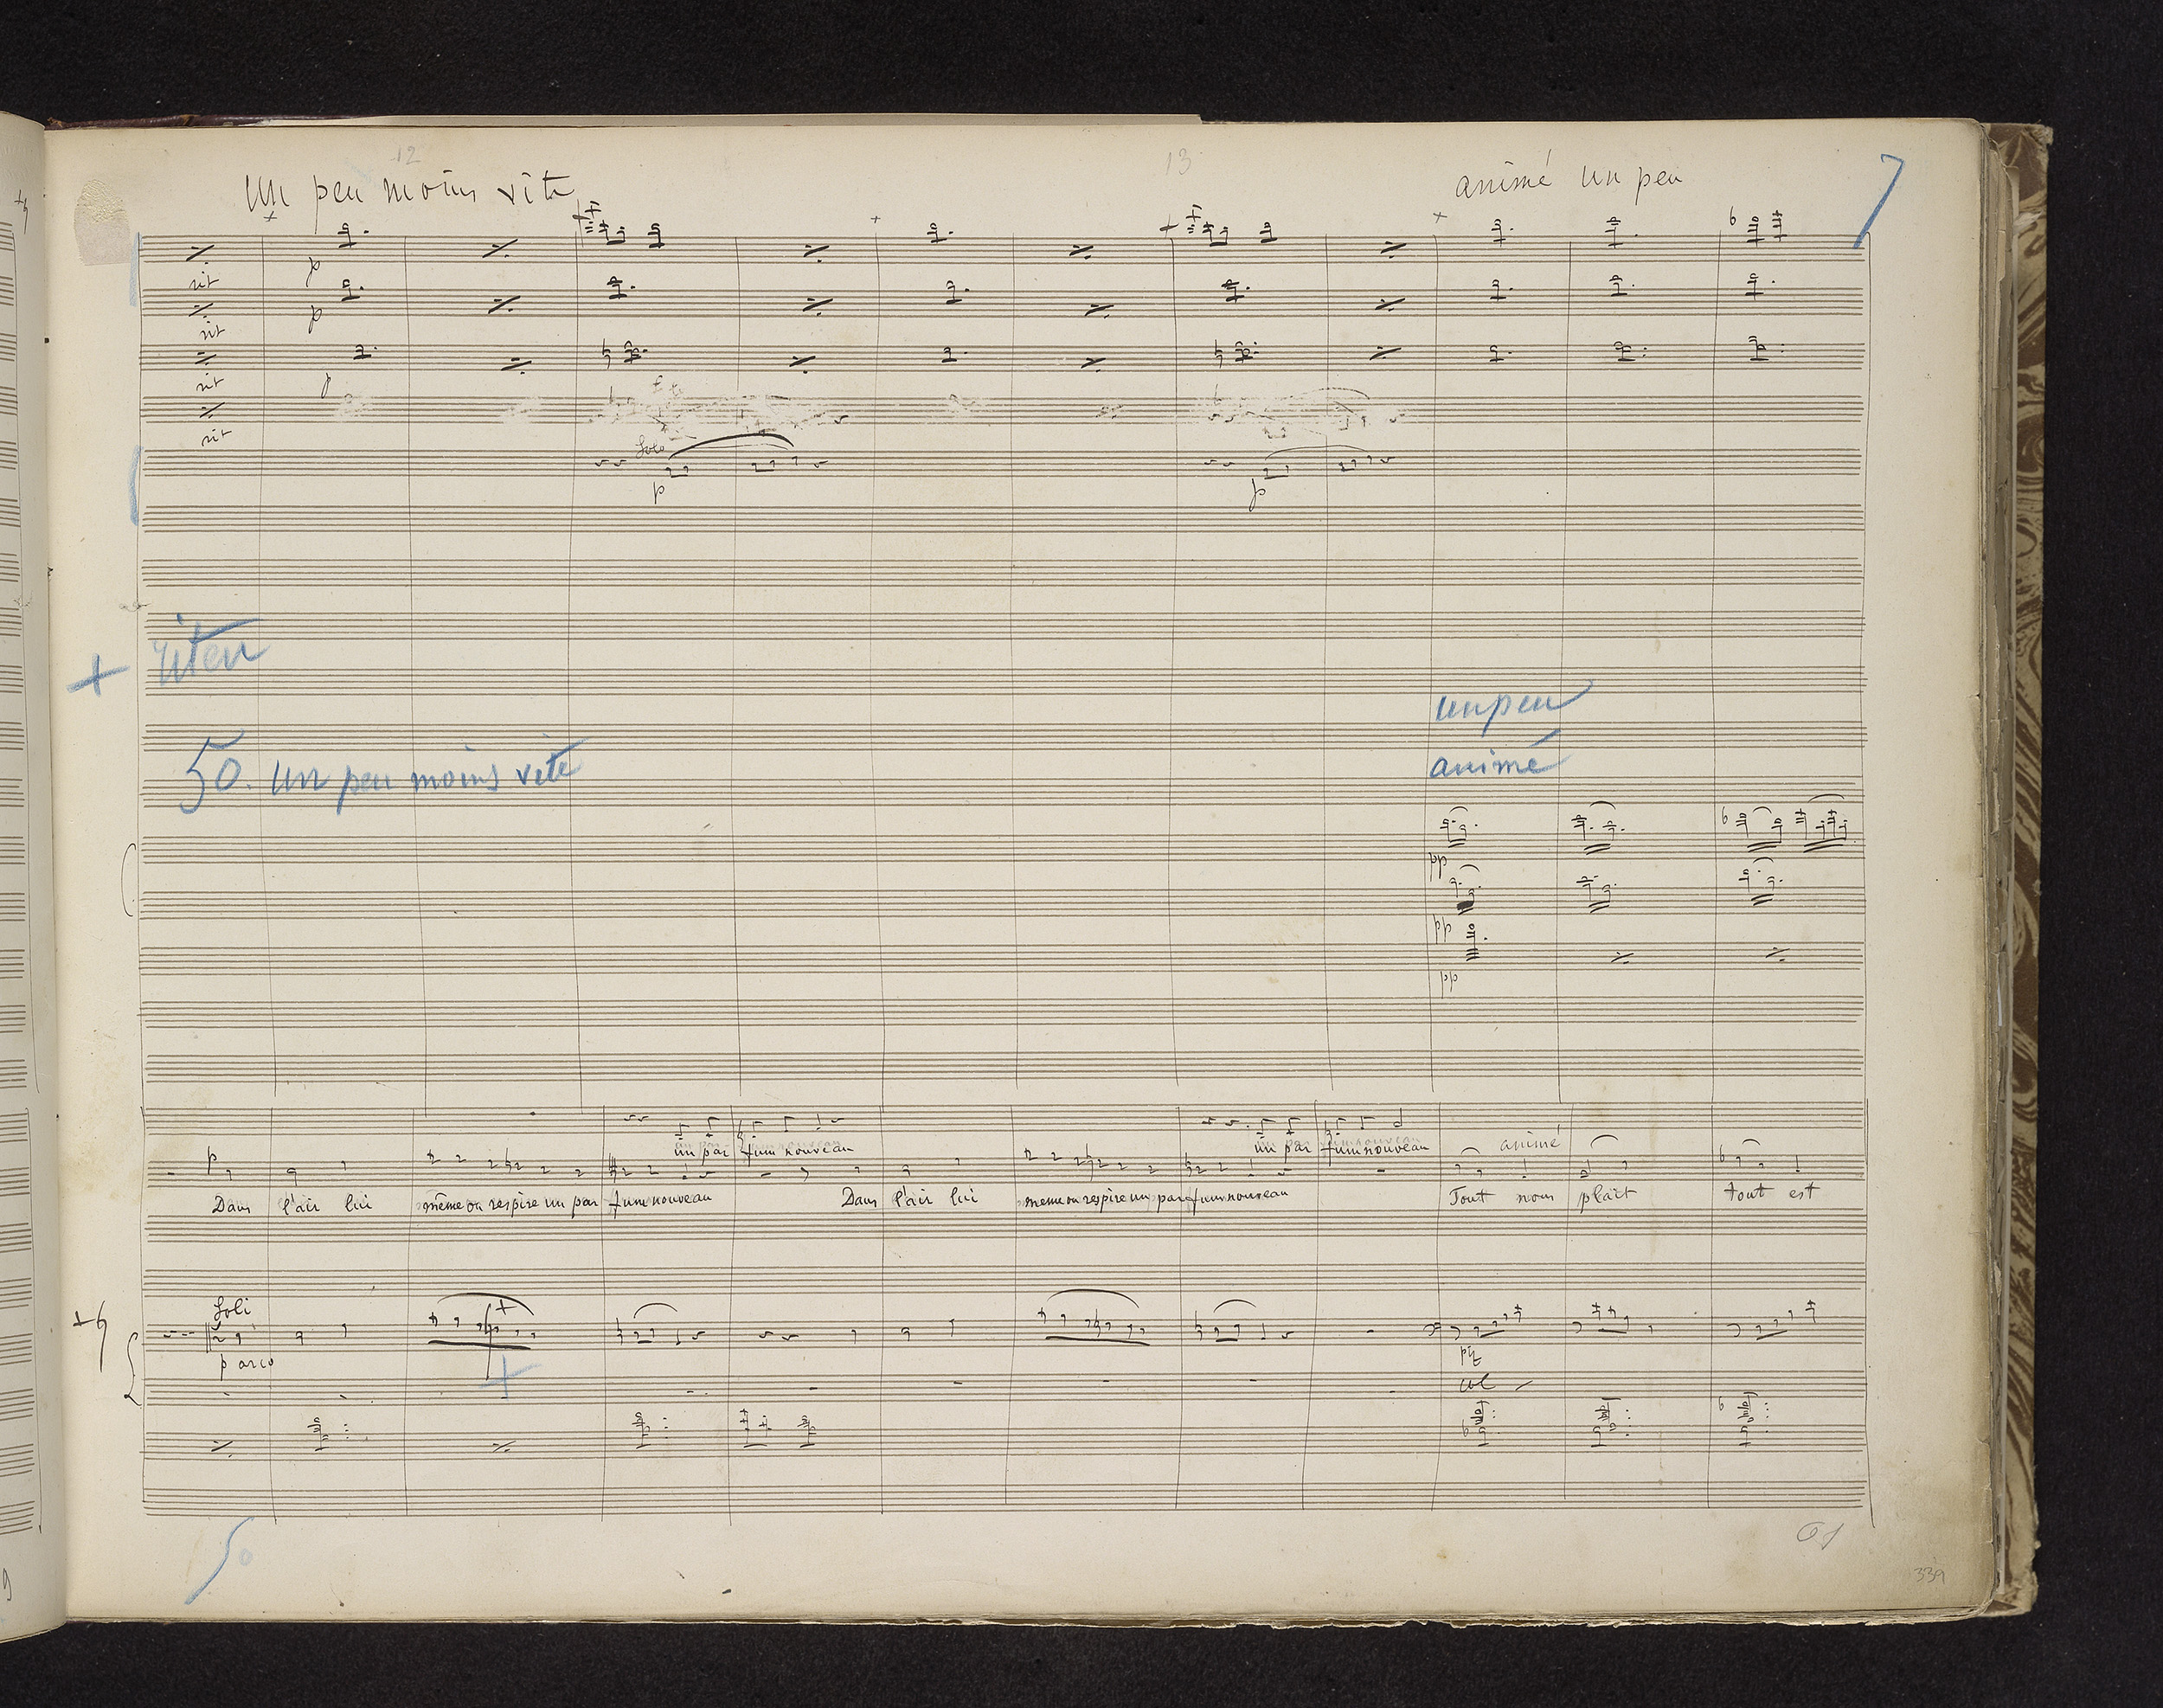 12
13
7
un peu moins vite
animé un peu
rit
p
rit
p
rit
p
rit
Solo
p
p
+ riten
un peu
animé
50. un peu moins vite
pp
pp
pp
un par fum nouveau
un par fum nouveau
p
animé
Dans l'air lui même on respire un par fum nouveau Dans l'air lui meme on respire un par fum nouveau Tout nous plait tout est
Soli
p arco
piz
col
50
61
339